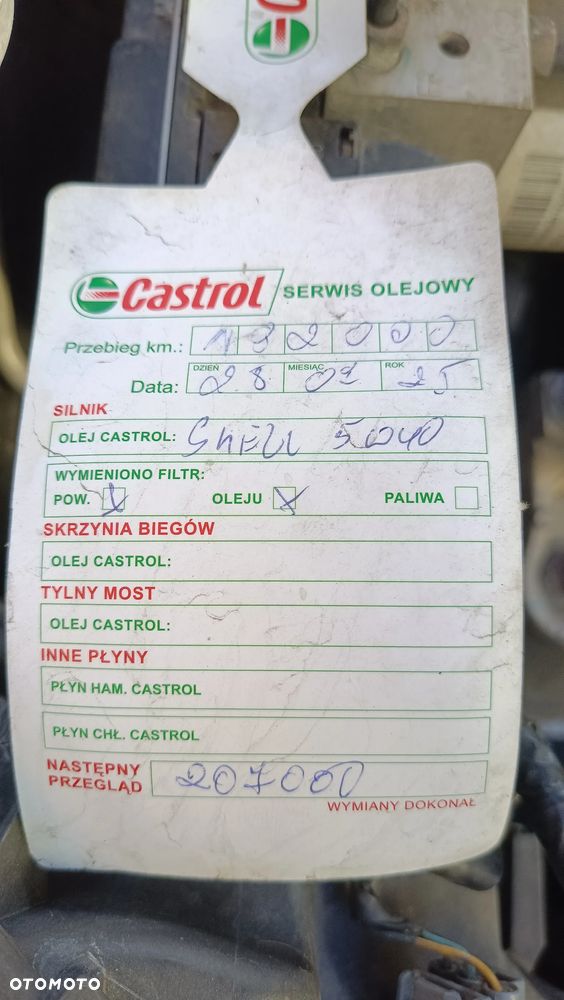 Castrol SERWIS OLEJOWY
Przebieg km.: 192000
DZIEŃ MIESIĄC ROK
Data: 28 01 25
SILNIK
OLEJ CASTROL: SHELL 5W40
WYMIENIONO FILTR:
POW. X OLEJU X PALIWA
SKRZYNIA BIEGÓW
OLEJ CASTROL:
TYLNY MOST
OLEJ CASTROL:
INNE PŁYNY
PŁYN HAM. CASTROL
PŁYN CHŁ. CASTROL
NASTĘPNY
PRZEGLĄD 207000
WYMIANY DOKONAŁ
OTOMOTO